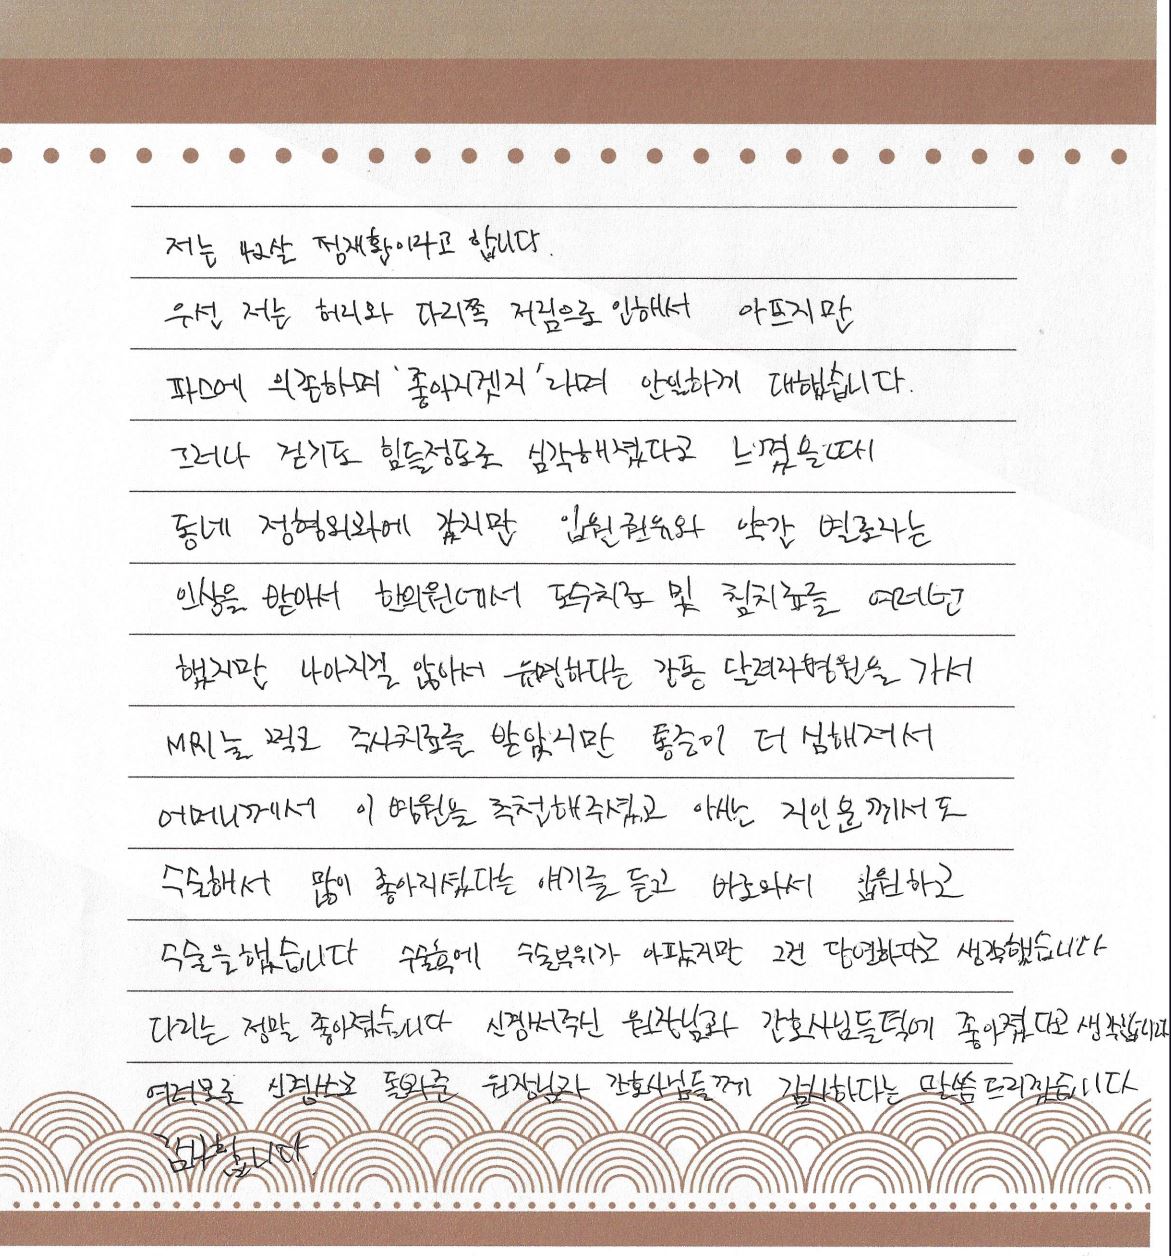 저는 42살 정재황이라고 합니다.
우선 저는 허리와 다리쪽 저림으로 인해서 아프지만
파스에 의존하며 '좋아지겟지'라며 안일하게 대했습니다.
그러나 걷기도 힘들정도로 심각해졌다고 느꼈을때
동네 정형외과에 갔지만 입원권유와 약간 별로라는
인상을 받아서 한의원에서 도수치료 및 침치료를
했지만 나아지질 않아서 유명하다는 강동 달려라병원을 가서
MRI늘 찍고 주사치료를 받았지만 통증이 더 심해져서
어머니께서 이 병원을 추천해주셨고 아시는 지인분께서도
수술해서 많이 좋아지셨다는 얘기를 듣고 바로와서 입원하고
수술을 했습니다 수술후에 수술부위가 아팠지만 그건 당연하다고 생각했습니다
다리는 정말 좋아졌습니다 신경써주신 원장님과 간호사님들덕에 좋아졌다고 생각합니다
여러모로 신경쓰고 돌와준 원장님과 간호사님들께 감사하다는 말씀드리겠습니다
감사합니다